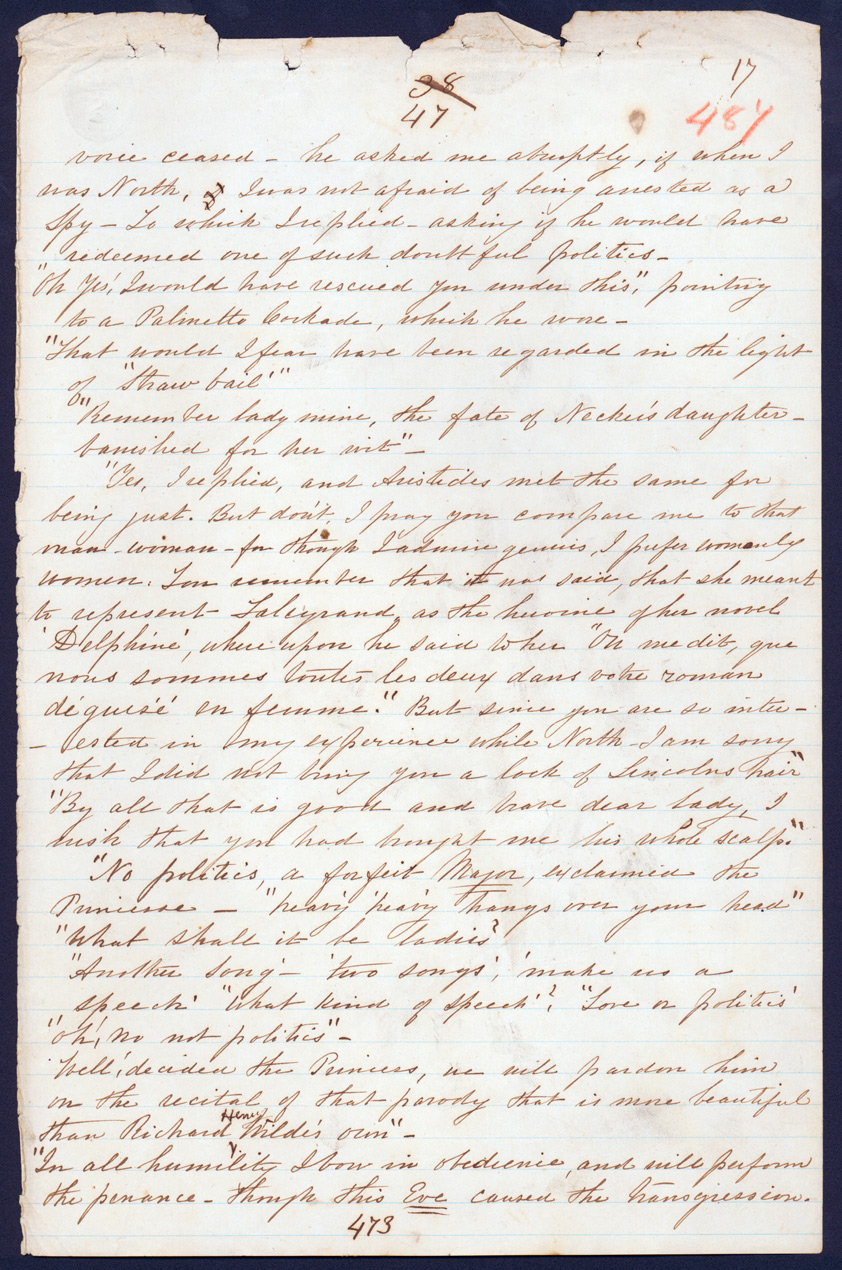 38
47
17
487
voice ceased – he asked me abruptly, if when I
was North, I was not afraid of being arrested as a
Spy – To which I replied – asking if he would have
redeemed one of such doubtful politics –
"Oh Yes, I would have rescued you under this", pointing
to a Palmetto Cockade, which he wore –
"That would I fear have been regarded in the light
of "Straw bail""
"Remember lady mine, the fate of Necker's daughter –
banished for her wit" –
"Yes, I replied, and Aristides met the same for
being just. But don't, I pray you compare me to that
man-woman – for though I admire genius, I prefer womanly
women. You remember that it was said, that she meant
to represent Talleyrand, as the heroine of her novel
'Delphine', where upon he said to her "On me dit, que
nous sommes toutes les deux dans votre roman
déguisé en femme." But since you are so inter-
-ested in my experience while North I am sorry
that I did not bring you a lock of Lincolns hair"
"By all that is good and brave dear lady, I
wish that you had brought me his whole scalp."
"No politics, a forfeit Major, exclaimed the
Princesse – "heavy heavy hangs over your head"
"What shall it be ladies?
"Another song – 'two songs', 'make us a
speech' "What kind of speech'? "Love or politics'
"Oh, no not politics" –
'Well', decided the Princess, we will pardon him
on the recital of that parody that is more beautiful
than Richard Henry Wilde's own" –
"In all humility I bow in obedience, and will perform
the penance – though this Eve caused the transgression.
473